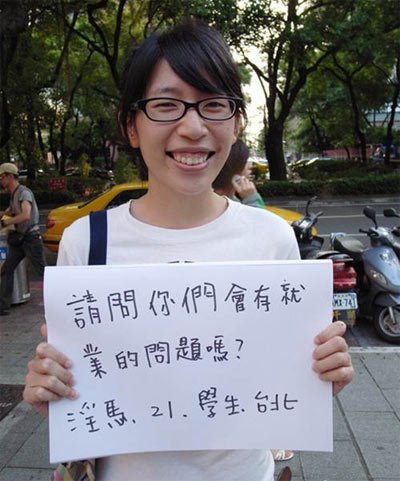 請問你們會有就
業的問題嗎?
淫馬、21、學生、台北